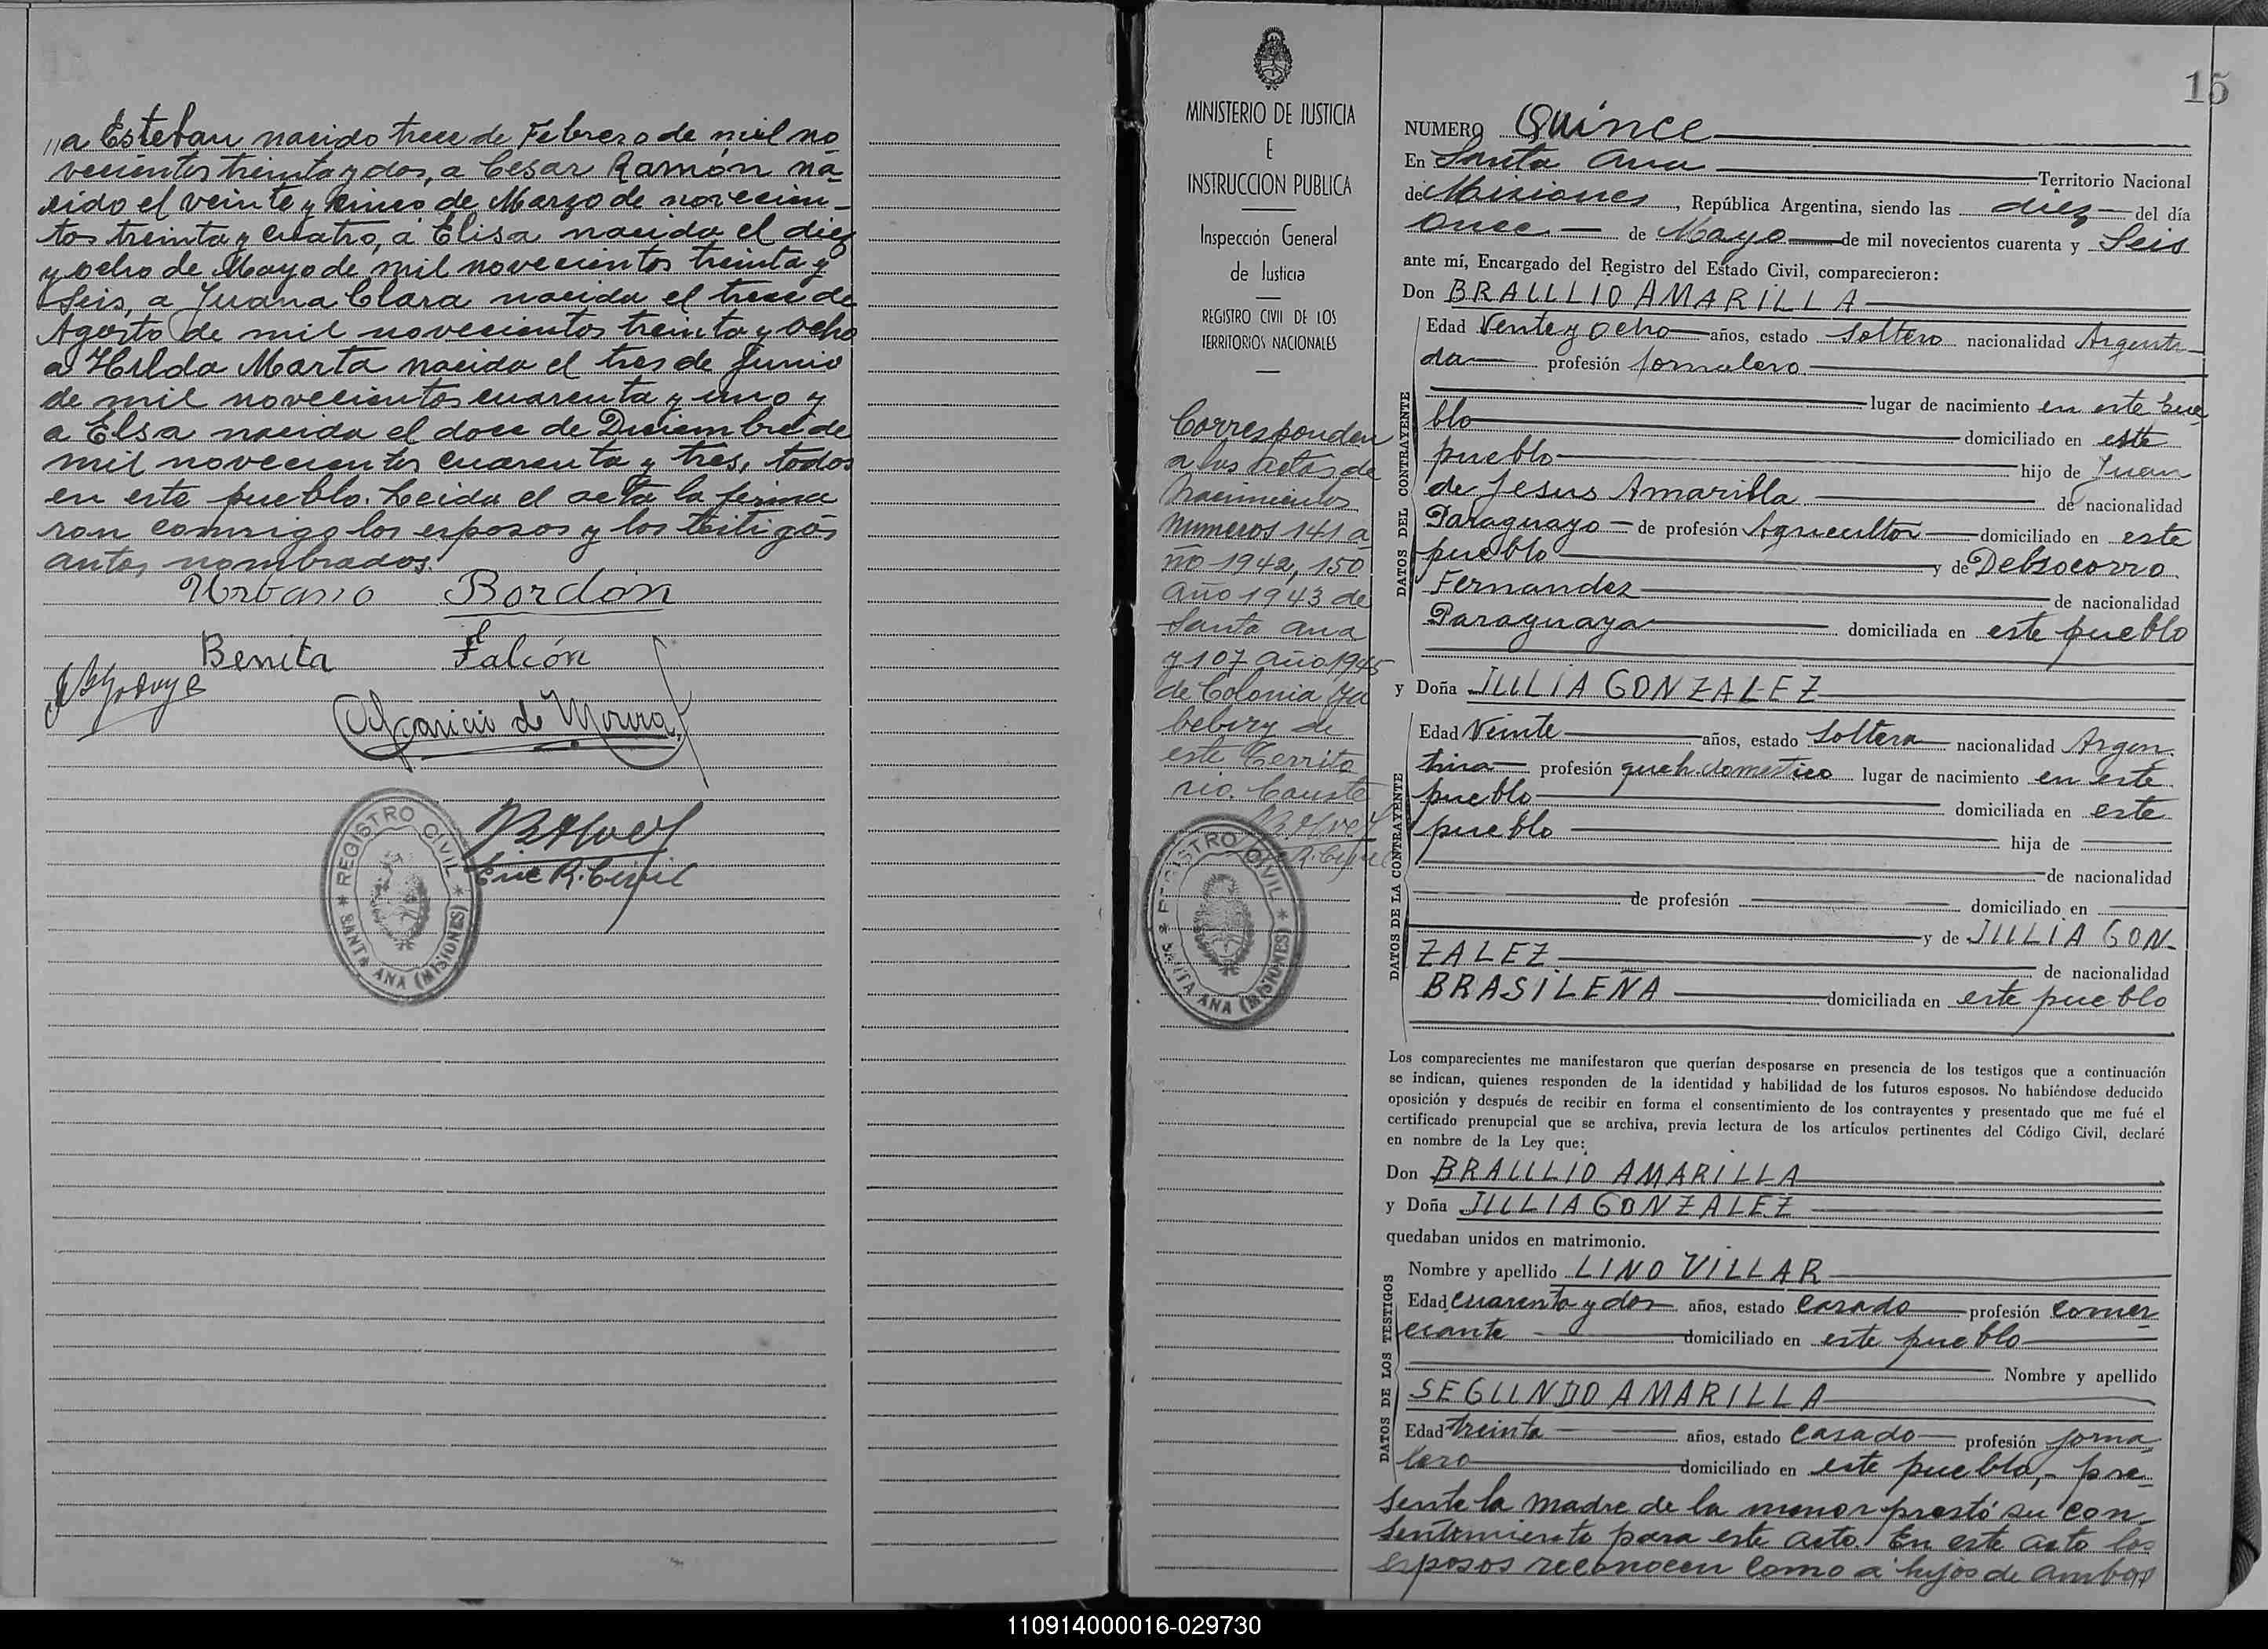 a Esteban nacido trece de Febrero de mil no-
vecientos treinta y dos, a Cesar Ramón na-
cido el veinte y cinco de Marzo de novecien-
tos treinta y cuatro, a Elisa nacida el diez
y ocho de Mayo de mil novecientos treinta y
Seis, a Juana Clara nacida el trece de
Agosto de mil novecientos treinta y ocho
a Hilda Marta nacida el tres de Junio
de mil novecientos cuarenta y uno y
a Elsa nacida el doce de Diciembre de
mil novecientos cuarenta y tres, todos
en este pueblo. Leida el acta la firma
ron conmigo los esposos y los testigos
antes nombrados.
Urbano Bordón
Benita Falcón
Aparicio de Moura
Enc R. Civil
REGISTRO CIVIL
* SANTA ANA (MISIONES) *
MINISTERIO DE JUSTICIA
E
INSTRUCCION PUBLICA
Inspección General
de Justicia
REGISTRO CIVIL DE LOS
TERRITORIOS NACIONALES
Corresponden
a las actas de
nacimientos
numeros 141 a-
ño 1942, 150
año 1943 de
Santa Ana
y 107 año 1945
de Colonia Ya
bebiry de
este Territo
rio. Conste
R. Civil
REGISTRO CIVIL
* SANTA ANA (MISIONES) *
15
NUMERO Quince
En Santa Ana Territorio Nacional
de Misiones, República Argentina, siendo las diez del día
Once de Mayo de mil novecientos cuarenta y Seis
ante mí, Encargado del Registro del Estado Civil, comparecieron:
Don BRAULLIO AMARILLA
DATOS DEL CONTRAYENTE
Edad Vente y Ocho años, estado Soltero nacionalidad Argenti-
profesión Jornalero
lugar de nacimiento en este pue
blo domiciliado en este
pueblo hijo de Juan
de Jesus Amarilla de nacionalidad
Paraguayo de profesión Agricultor domiciliado en este
pueblo y de Delsocorro
Fernandez de nacionalidad
Paraguaya domiciliada en este pueblo
y Doña JULIA GONZALEZ
DATOS DE LA CONTRAYENTE
Edad Veinte años, estado Soltera nacionalidad Argen-
tina profesión queh. domestico lugar de nacimiento en este
pueblo domiciliada en este
pueblo hija de
de nacionalidad
de profesión domiciliado en
y de JULIA GON-
ZALEZ de nacionalidad
BRASILEÑA domiciliada en este pueblo
Los comparecientes me manifestaron que querían desposarse en presencia de los testigos que a continuación
se indican, quienes responden de la identidad y habilidad de los futuros esposos. No habiéndose deducido
oposición y después de recibir en forma el consentimiento de los contrayentes y presentado que me fué el
certificado prenupcial que se archiva, previa lectura de los artículos pertinentes del Código Civil, declaré
en nombre de la Ley que:
Don BRAULLIO AMARILLA
y Doña JULLIA GONZALEZ
quedaban unidos en matrimonio.
DATOS DE LOS TESTIGOS
Nombre y apellido LINO VILLAR
Edad cuarenta y dos años, estado casado profesión comer
ciante domiciliado en este pueblo
Nombre y apellido
SEGUNDO AMARILLA
Edad treinta años, estado casado profesión jorna-
lero domiciliado en este pueblo,- pre-
sente la madre de la menor prestó su con-
sentimiento para este acto. En este acto los
esposos reconocen como a hijos de ambos
110914000016-029730